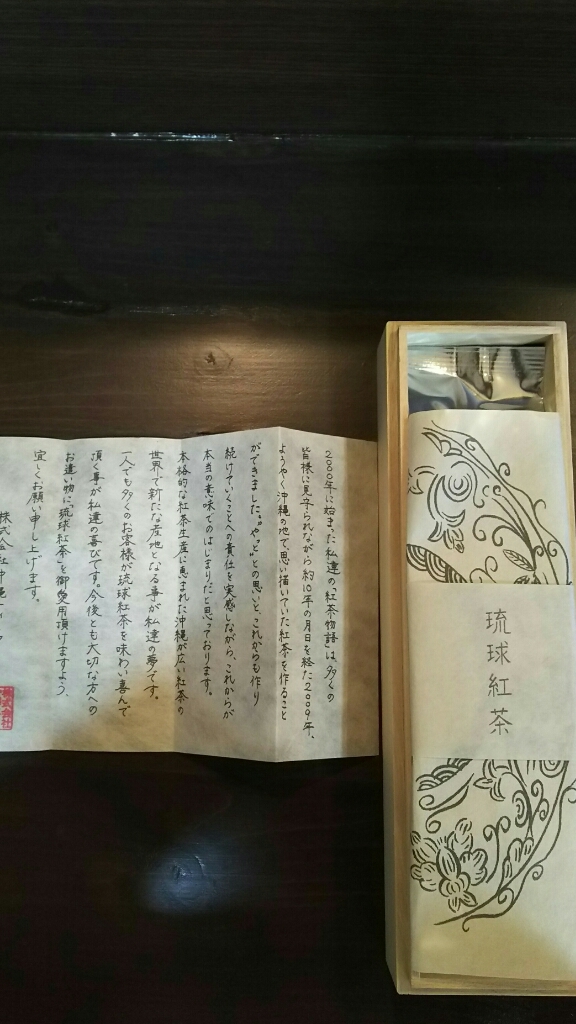 琉球紅茶
2000年に始まった私達の「紅茶物語」は、多くの
皆様に見守られながら約10年の月日を経た2009年、
ようやく沖縄の地で、思い描いていた紅茶を作ること
ができました。"やっと"との思いと、これからも作り
続けていくことへの責任を実感しながら、これからが
本当の意味でのはじまりだと思っております。
本格的な紅茶生産に恵まれた沖縄が広い紅茶の
世界で新たな産地となる事が私達の夢です。
一人でも多くのお客様が琉球紅茶を味わい喜んで
頂く事が私達の喜びです。今後とも大切な方への
お遣い物に「琉球紅茶」を御愛用頂けますよう、
宜しくお願い申し上げます。
株式会社沖縄ティ
株式会社